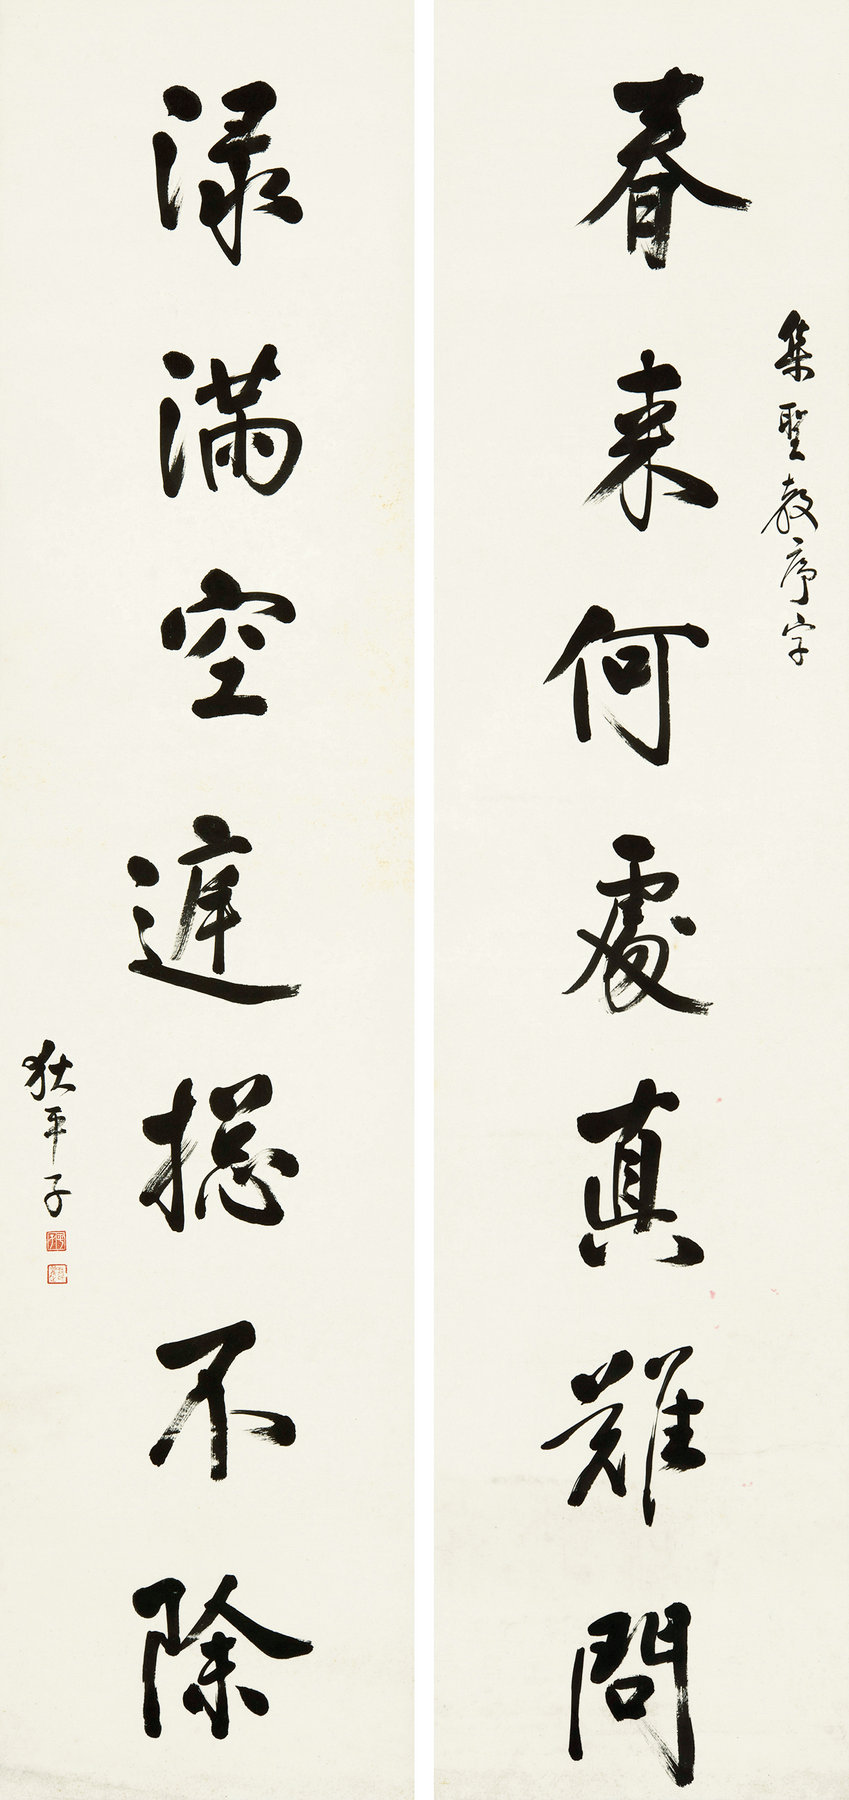 春来何處真難問
集聖教序字
渌滿空庭揔不除
狄平子